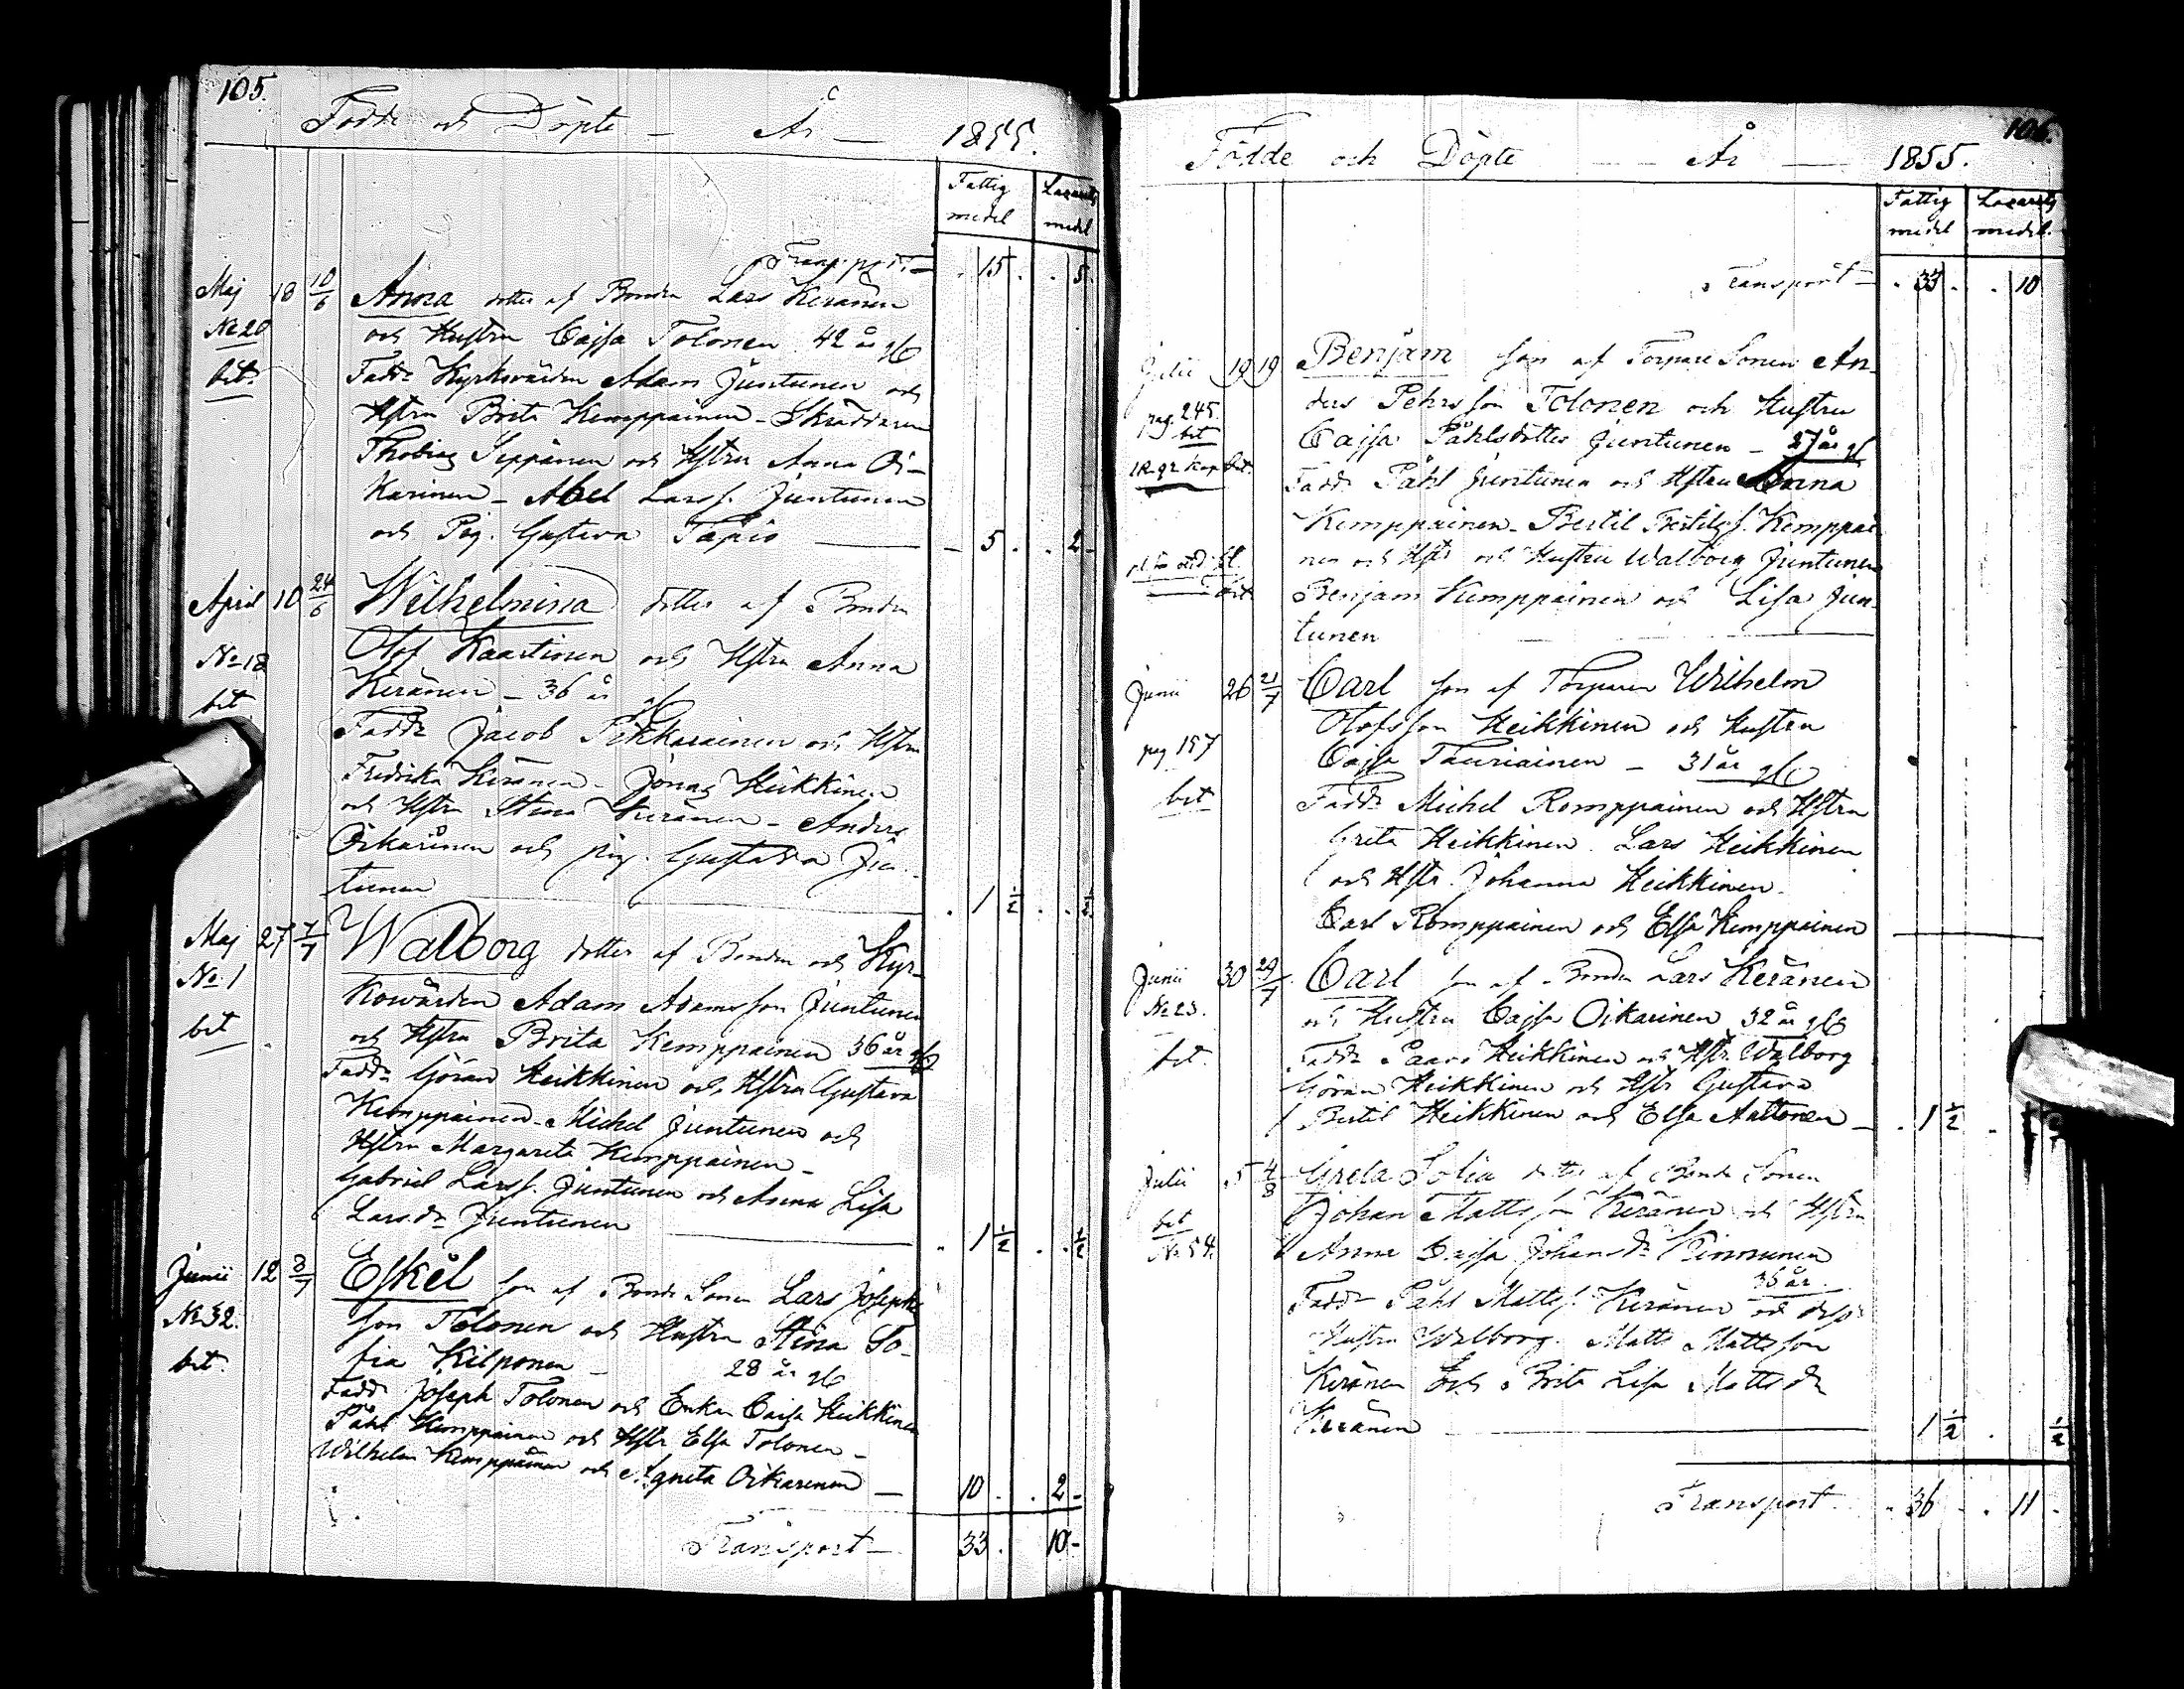 105.
Födde och Döpte — År — 1855.
Fattig medel Lazaretts medel
Transport — 15. 5.
Maj 18 10/6 Anna dotter af Bonden Lars Keränen
No 20 och Hustru Cajsa Tolonen 42 år gl
bet. Fadd: Kyrkovärden Adam Juntunen och
Hstru Brita Kemppainen – Skräddaren
Thobias Seppänen och Hstru Anna Oi-
karinen – Abel Larss. Juntunen
och Pig. Gustava Tapio — 5. 2-
April 10 24/6 Wilhelmina dotter af Bonden
No 18 Olof Kaartinen och Hstru Anna
bet Keränen – 36 år gl
Fadd: Jacob Pikkarainen och Hstru
Fredrika Keränen – Jonas Heikkinen
och Hstru Stina Keränen – Anders
Oikarinen och pig. Gustava Jun-
tunen 1 1/2 1/2
Maj 27 7/7 Walborg dotter af Bonden och Kyr-
No 1 kowärden Adam Adamsson Juntunen
bet och Hstru Brita Kemppainen 36 år gl
Fadd: Göran Heikkinen och Hstru Gustava
Kemppainen – Michel Juntunen och
Hstru Margareta Kemppainen –
Gabriel Larss. Juntunen och Anna Lisa
Larsdr Juntunen 1 1/2 1/2
Junii 12 8/7 Eskel son af Bonde Sonen Lars Josephs
No 32. son Tolonen och Hustru Stina So-
bet. fia Kilponen – 28 år gl
Fadd: Joseph Tolonen och Enkan Caisa Heikkinen
Påhl Kemppainen och Hstr Elsa Tolonen –
Wilhelm Kemppainen och Agneta Oikarinen — 10. 2-
Transport — 33. 10-
106.
Födde och Döpte — År — 1855.
Fattig medel Lazaretts medel.
Transport — 33. 10
Julii 19 19 Benjam son af Torpare Sonen An-
pag. 245. ders Pehrsson Tolonen och Hustru
bet Cajsa Påhlsdotter Juntunen – 27 år gl
Fadd: Påhl Juntunen och Hstru Anna
Kemppainen – Bertil Bertilss. Kemppai
nen och Hstr och Hustru Walborg Juntunen
Benjam Kemppainen och Lisa Jun-
tunen
Junii 26 21/7 Carl son af Torparen Wilhelm
Olofsson Heikkinen och Hustru
pag 157 Cajsa Tauriainen – 31 år gl
bet Fadd: Michel Romppainen och Hstru
Greta Heikkinen. Lars Heikkinen
och Hstr. Johanna Heikkinen.
Carl Romppainen och Elsa Kemppainen
Junii 30 29/7 Carl son af Bonden Lars Keränen
No 23. och Hustru Cajsa Oikarinen 32 år gl
bet. Fadd: Paavo Heikkinen och Hstr Walborg
Göran Heikkinen och Hstr Gustava
Bertil Heikkinen och Elsa Aattonen – 1 1/2
Julii 5 4/8 Greta Sofia dotter af Bonde Sonen
bet Johan Mattsson Keränen och Hstru
No 54. Anna Caisa Johansdr Kinnunen
36 år.
Fadd: Påhl Mattss. Keränen och dess
Hustru Walborg. Matts Mattsson
Keränen och Brita Lisa Matts dr
Keränen 1 1/2 1/2
Transport. 36 11